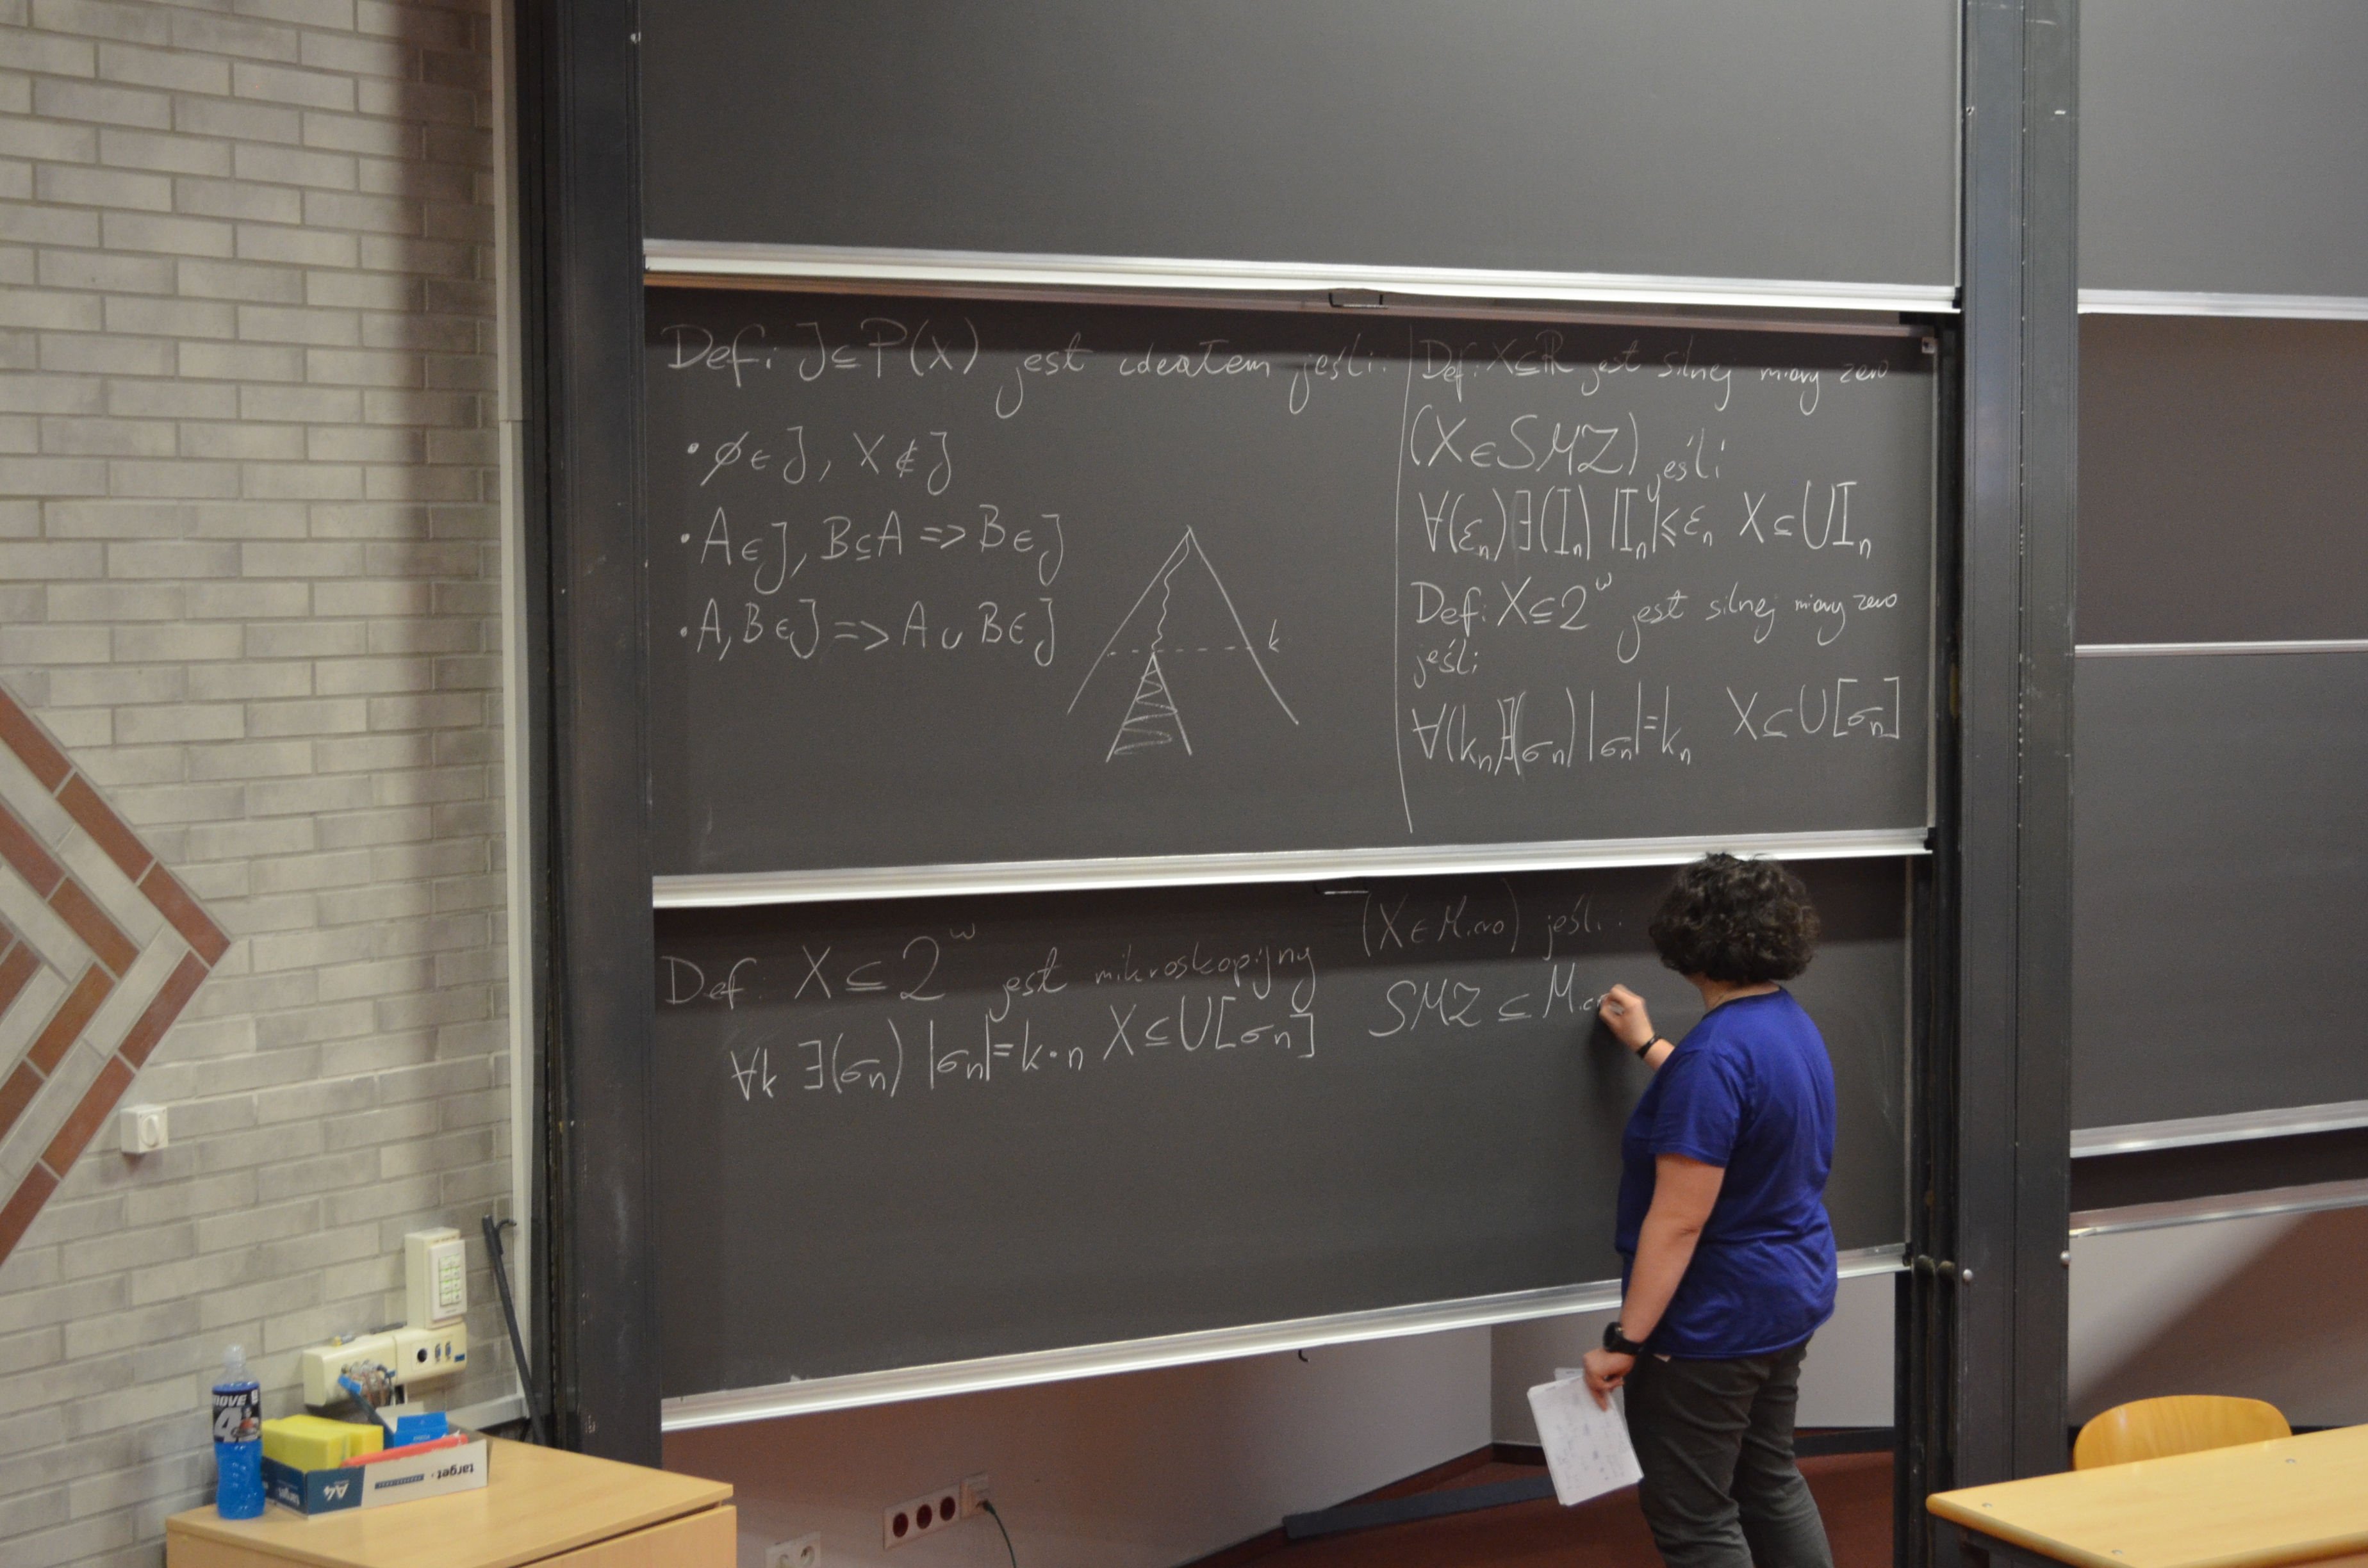 Def: J⊆P(X) jest ideałem jeśli:
• ∅∈J, X∉J
• A∈J, B⊆A => B∈J
• A,B∈J => A∪B∈J
k
Def: X⊆ℝ jest silnej miary zero
(X∈SMZ) jeśli
∀(εₙ)∃(Iₙ) |Iₙ|≤εₙ X⊆∪Iₙ
Def: X⊆2^ω jest silnej miary zero
jeśli
∀(kₙ)∃(σₙ) |σₙ|=kₙ X⊆∪[σₙ]
Def: X⊆2^ω jest mikroskopijny (X∈Micro) jeśli:
∀k ∃(σₙ) |σₙ|=k·n X⊆∪[σₙ] SMZ⊆Mic
MOVE
4
A4
target
target